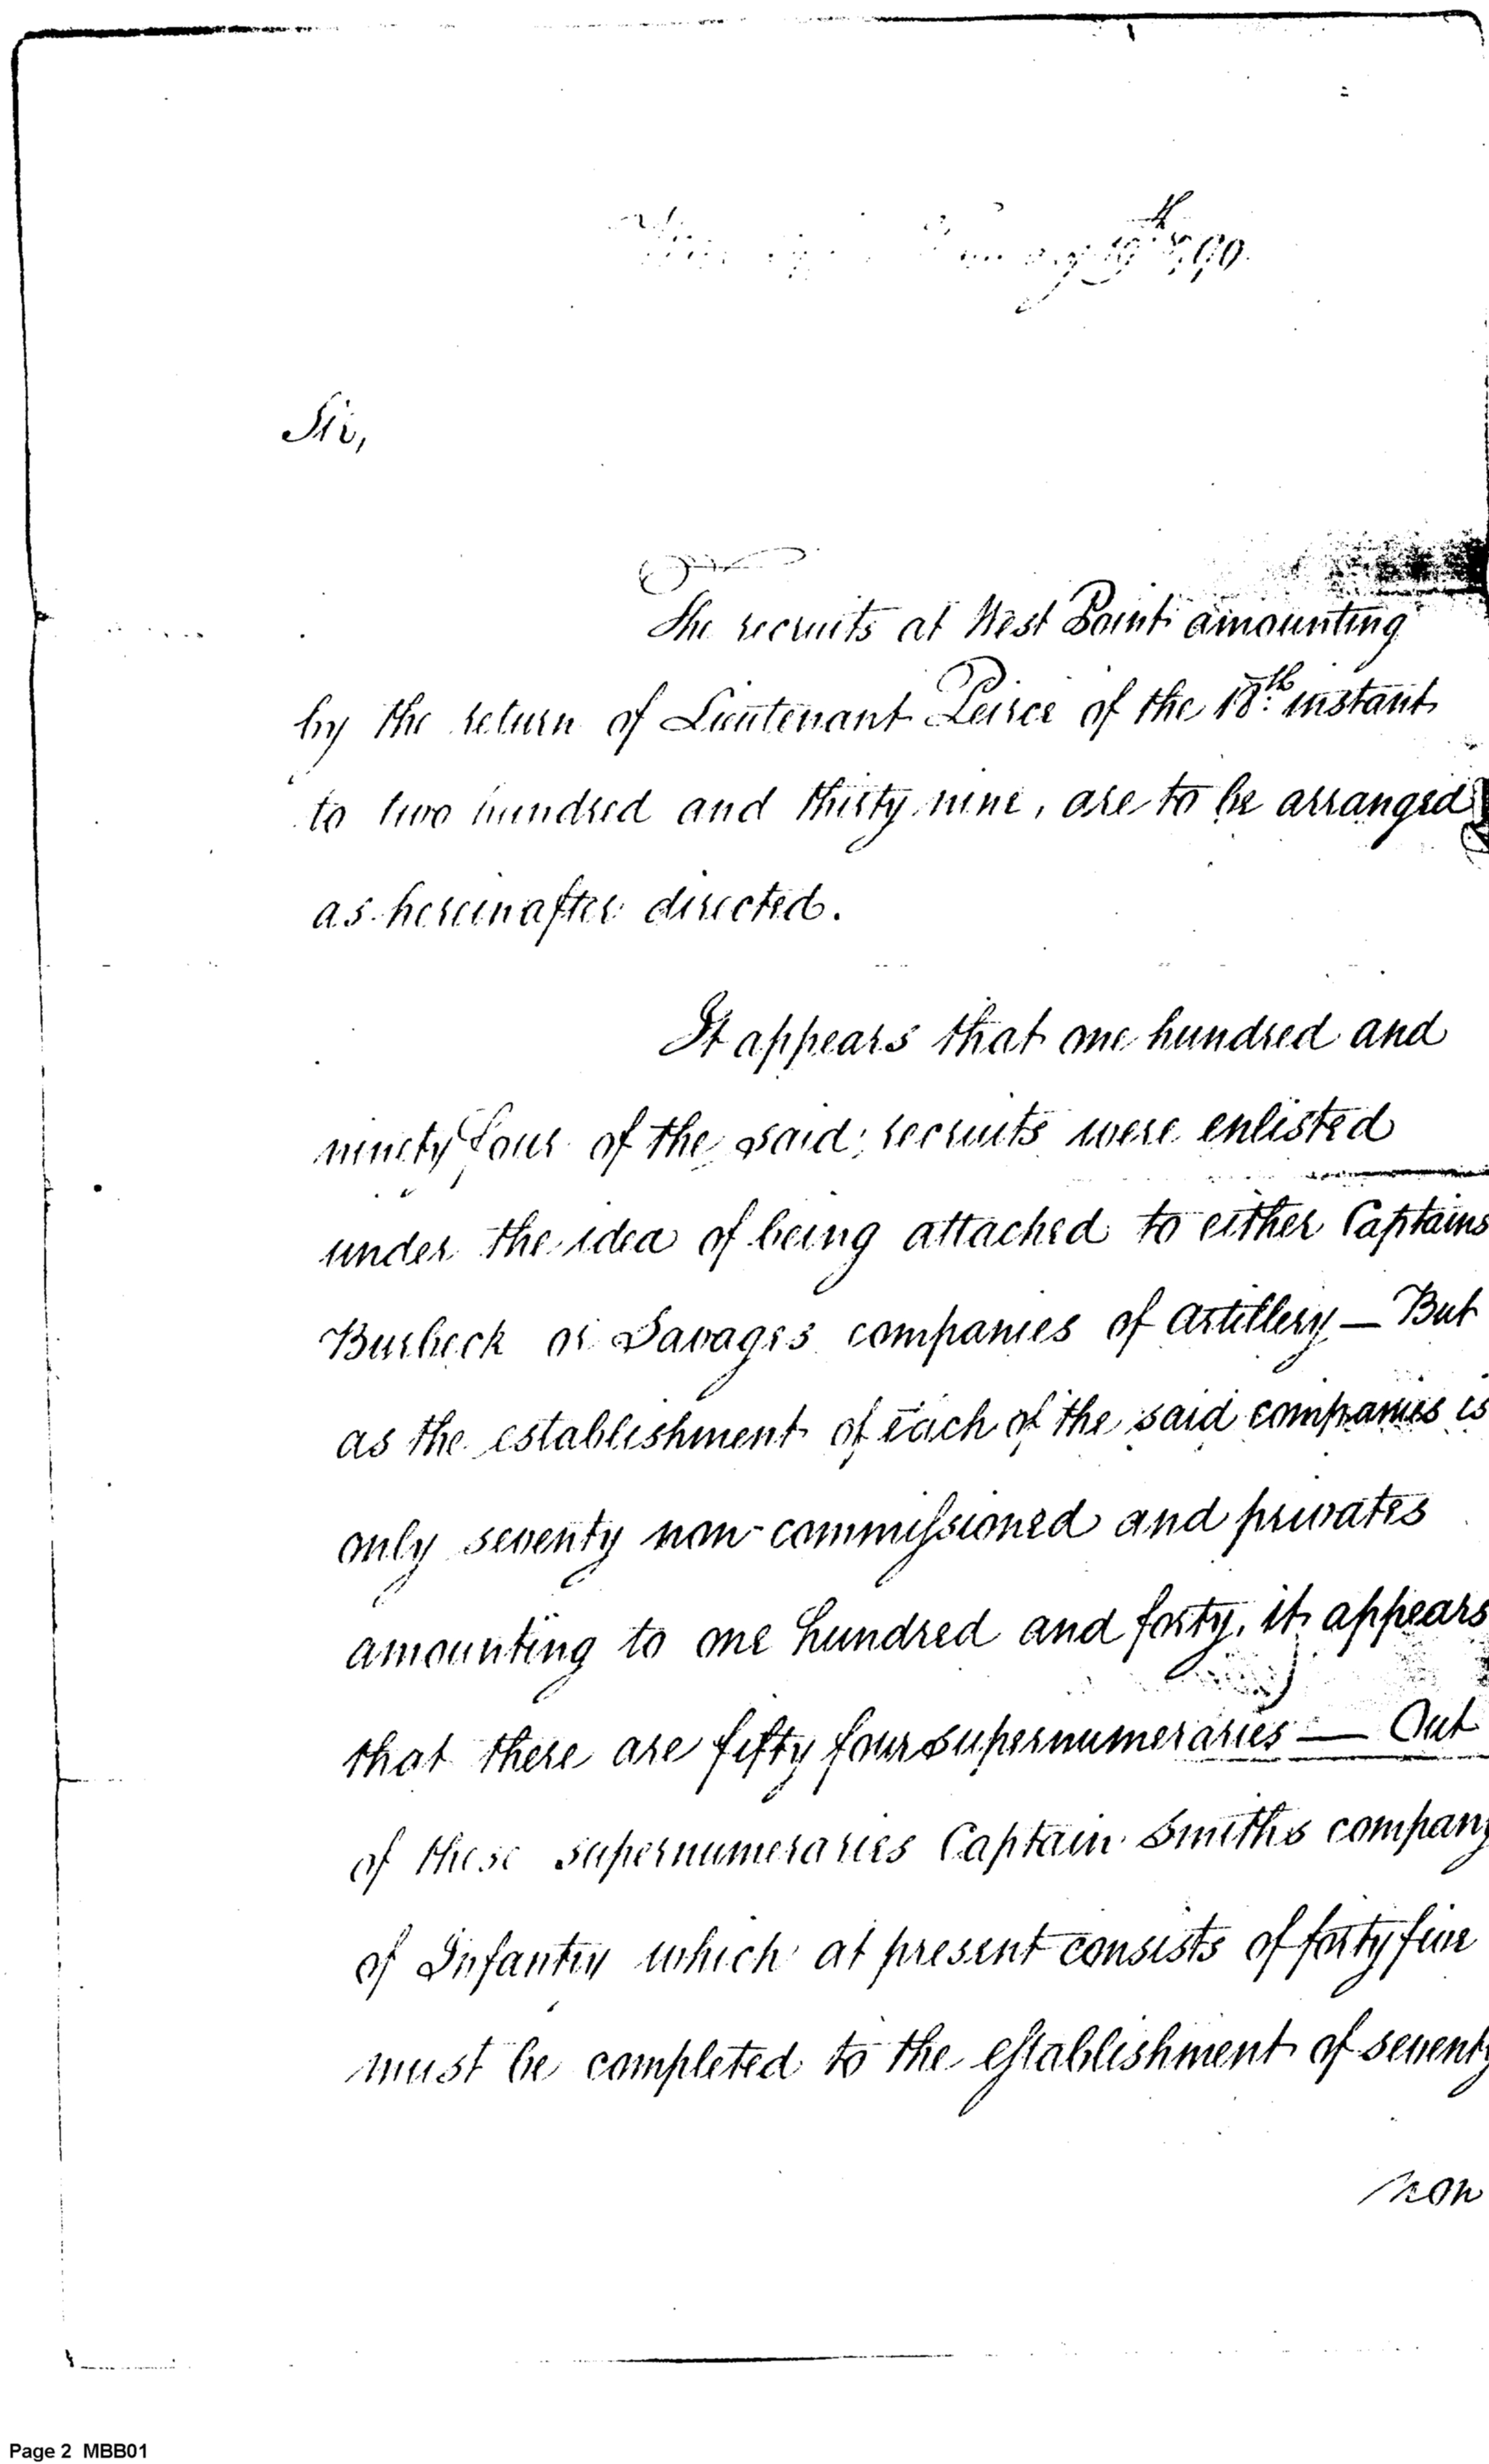 19th 1790.
Sir,
The recruits at West Point amounting
by the return of Lieutenant Peirce of the 18th instant
to two hundred and thirty nine, are to be arranged
as hereinafter directed.
It appears that one hundred and
ninety four of the said recruits were enlisted
under the idea of being attached to either Captains
Burbeck or Savages companies of Artillery — But
as the establishment of each of the said companies is
only seventy non-commissioned and privates
amounting to one hundred and forty, it appears
that there are fifty four supernumeraries — Out
of these supernumeraries Captain Smiths company
of Infantry which at present consists of forty five
must be completed to the establishment of seventy
non
Page 2 MBB01